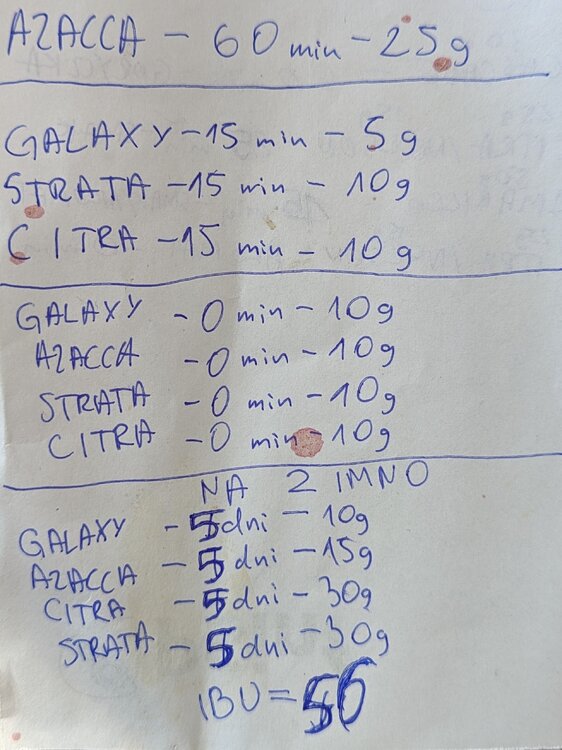 AZACCA - 60 min - 25g
GALAXY - 15 min - 5g
STRATA - 15 min - 10g
CITRA - 15 min - 10g
GALAXY - 0 min - 10g
AZACCA - 0 min - 10g
STRATA - 0 min - 10g
CITRA - 0 min - 10g
NA ZIMNO
GALAXY - 5 dni - 10g
AZACCA - 5 dni - 15g
CITRA - 5 dni - 30g
STRATA - 5 dni - 30g
IBU = 56